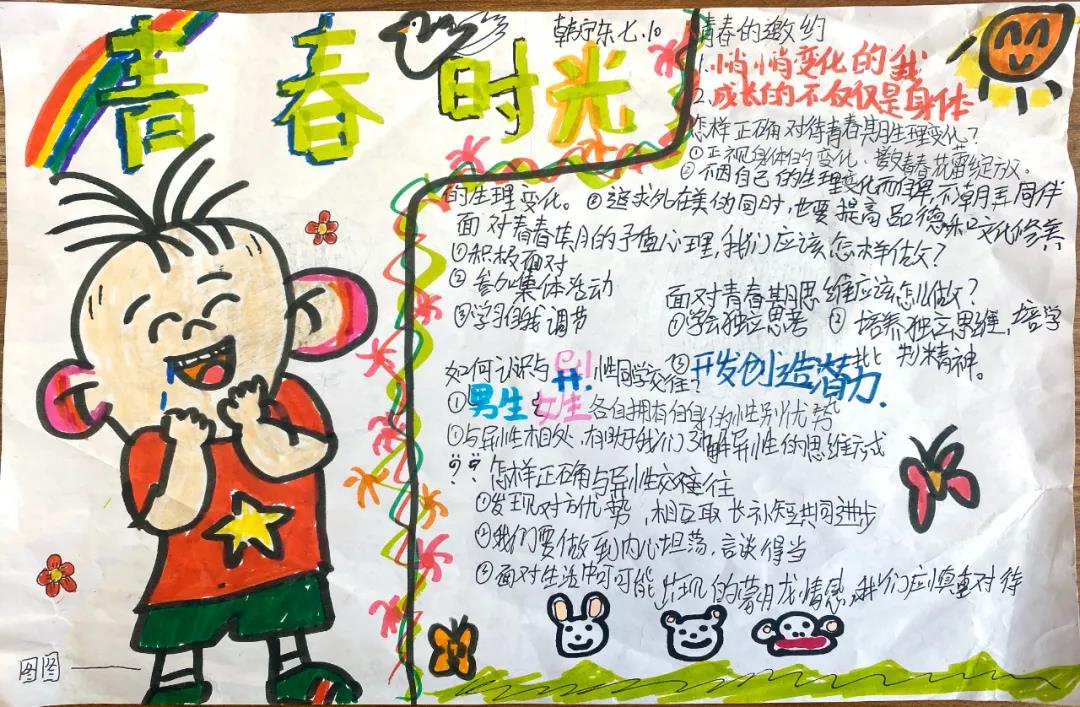 青春时光
韩宇东 七.10
青春的邀约
1.悄悄变化的我
2.成长的不仅仅是身体
怎样正确对待青春期生理变化?
①正视身体的变化、春花蕾绽放。
②不因自己的生理变化而自卑,不嘲弄同伴
的生理变化。③追求外在美的同时,也要提高品德和文化修养
面对青春期的矛盾心理,我们应该怎样做?
①积极面对
②参加集体活动
③学习自我调节
面对青春期思维应该怎么做?
①学会独立思考 ②培养独立思维,培学
批判精神。
③开发创造潜力.
如何认识与异性同学交往?
①男生 女生各自拥有自身的性别优势
②与异性相处,有助于我们了解异性的思维方式
怎样正确与异性交往
①发现对方优势,相互取长补短共同进步
②我们要做到内心坦荡,言谈得当
④面对生活中可可能出现的朦胧情感,我们应慎重对待
图图